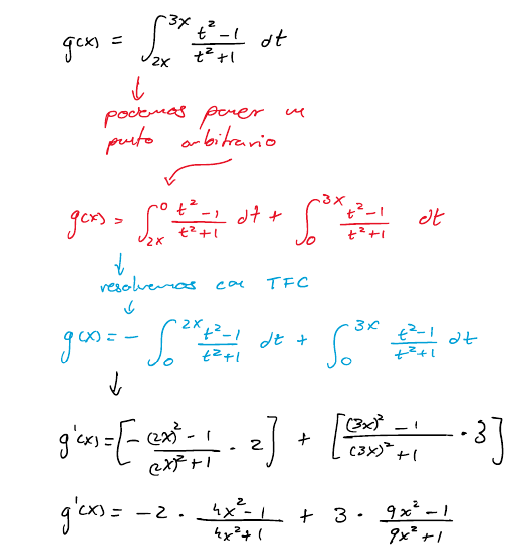 g(x) = ∫_{2x}^{3x} \frac{t²-1}{t²+1} dt
↓
podemos poner un
punto arbitrario
g(x) = ∫_{2x}^{0} \frac{t²-1}{t²+1} dt + ∫_{0}^{3x} \frac{t²-1}{t²+1} dt
↓
resolvemos con TFC
↓
g(x) = - ∫_{0}^{2x} \frac{t²-1}{t²+1} dt + ∫_{0}^{3x} \frac{t²-1}{t²+1} dt
↓
g'(x) = [- \frac{(2x)²-1}{(2x)²+1} · 2] + [\frac{(3x)²-1}{(3x)²+1} · 3]
g'(x) = -2 · \frac{4x²-1}{4x²+1} + 3 · \frac{9x²-1}{9x²+1}